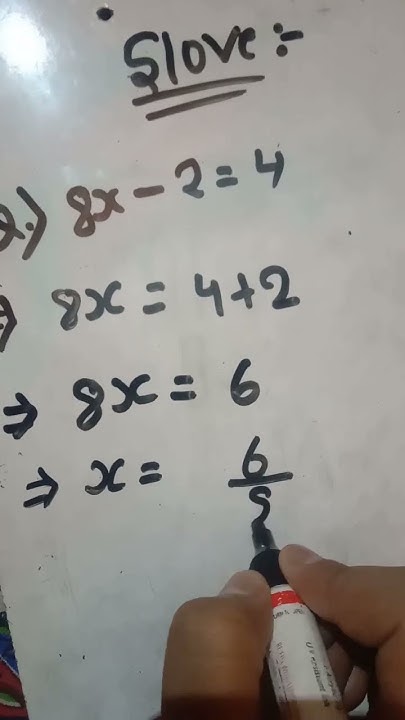 Slove:-
Q.) 8x - 2 = 4
⇒ 8x = 4 + 2
⇒ 8x = 6
⇒ x = 6/